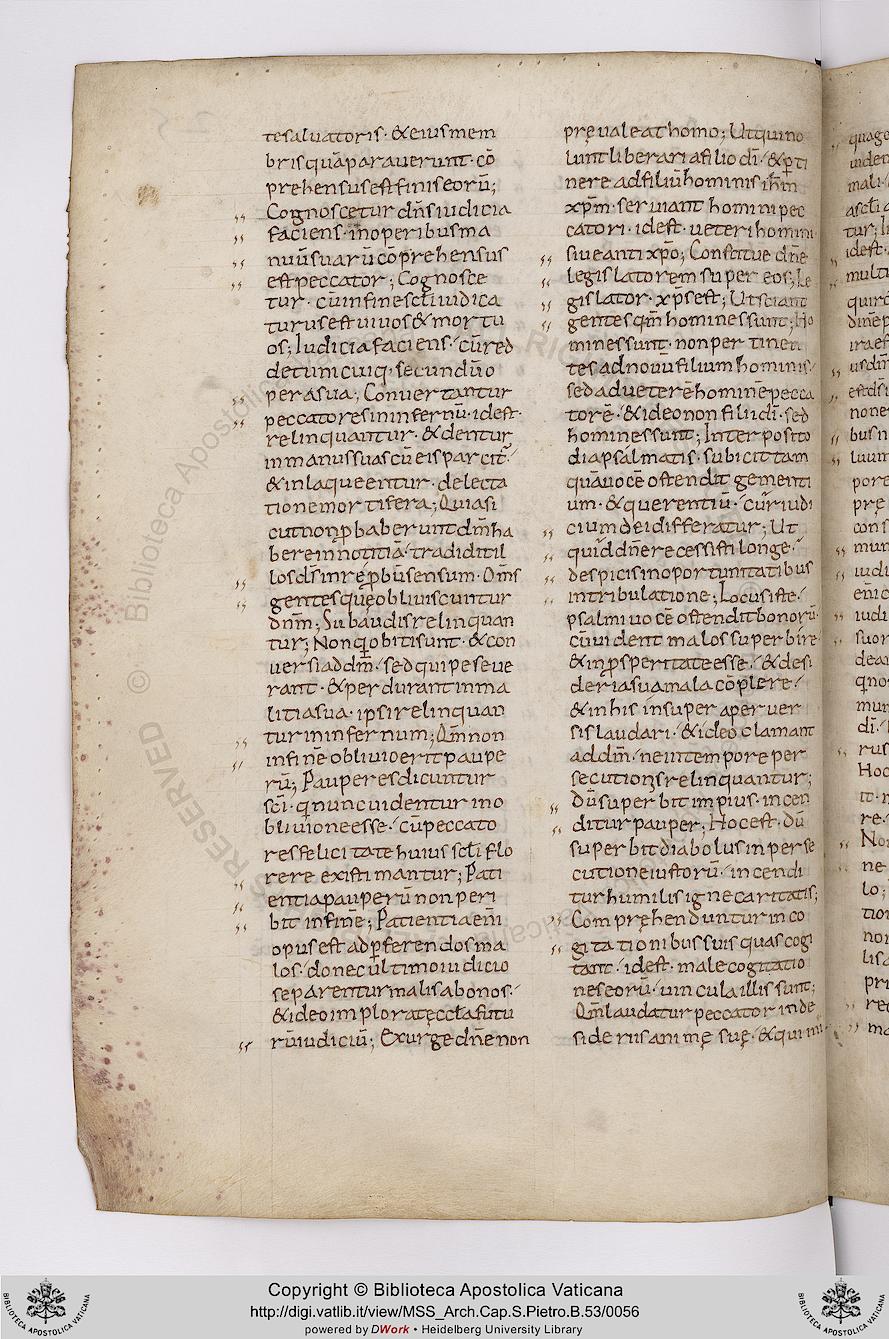 tesaluatoris· &eiusmem
brisquāparauerunt· cō
prehensusestfiniseorū;
Cognoscetur dn̄siudicia
faciens· inoperibusma
nuūsuarūcōprehensus
estpeccator; Cognosce
tur· cūinfinesc̄liiudica
turusestuiuos&mortu
os; Iudiciafaciens· cūred
detunicuiq· secunduo
perasua; Conuertantur
peccatoresininfernū· idest·
relinquantur· &dentur
inmanussuascūeisparcit̄·
&inlaqueentur· delecta
tionemortifera; Quiasi
cutnonꝓbaberuntdm̄ha
bereinnotitiā· tradiditil
losds̄inrepꝓbūsensum· Om̄s
gentesquęobliuiscuntur
dnm̄; Subaudisrelinquan
tur; Nonq̄obitisunt· &con
uersiaddm̄· sedquipeseue
rant· &perdurantinma
litiasua· ipsirelinquan
turininfernum; Qm̄non
infinēobliuioeritpaupe
rū; Pauperesdicuntur
sc̄i· q̄nuncuidenturino
bliuioneesse· cūpeccato
resfelicitatehuiussc̄liflo
rere existimantur; Pati
entiapauperūnonperi
bit infinē; Patientiaem̄
opusestadꝑferendosma
los· donecultimoiudicio
separenturmalisabonos·
&ideoimploratęcc̄lafutu
rūiudiciū; Exurgedn̄enon
pręualeathomo; Utquino
luntliberariafiliodī· &ꝑti
nere adfiliūhominisih̄m
xp̄m· seruiant hominipec
catori· idest· ueterihomini
siueantixp̄o; Constitue dn̄e
legislatoremsuper eos; Le
gislator· xp̄sest; Utsciant
gentesqm̄hominessunt; Ho
minessunt· nonpertinen
tesadnouūfiliumhominis·
sedadueterēhominēpecca
torē· &ideononfiliidī· sed
hominessunt; Interposito
diapsalmatis· subicittam
quāuocēostendit gementi
um· &querentiū· cūriudi
ciumdeidifferatur; Ut
quiddn̄erecessistilonge·
despicisinoportunitatibus
intribulatione; Locusiste·
psalmiuocēostenditbonorū·
cūuident malossuperbire·
&inꝓsperitateesse· &desi
deriasuamalacōplere·
&inhis insuper aperuer
sislaudari· &ideoclamant
addm̄· neintempore per
secutionisrelinquantur;
Dūsuperbitimpius· incen
diturpauper; Hocest· Dū
superbitdiabolusinperse
cutioneiustorū· incendi
turhumilisignecaritatis;
Comprehendunturinco
gitationibussuisquascogi
tant· idest· malecogitatio
neseorū· uinculaillissunt;
Qm̄laudaturpeccatorinde
sideriisanimęsuę· &quini
quage
uiden
mali·
asc̄lia
tur; I
idest·
multi
quiro
din̄ep
iraef
usdm̄
estdsi
none
busn
luum
pore
pre
cons
mun
iudi
em̄c
iudi
suor
dear
qnos
mun
dī·
rus
Hoc
it· n
re·
Non
ne
lo;
tion
non
lisa
pri
rec
ma
Copyright © Biblioteca Apostolica Vaticana
http://digi.vatlib.it/view/MSS_Arch.Cap.S.Pietro.B.53/0056
powered by DWork • Heidelberg University Library
BIBLIOTECA APOSTOLICA VATICANA
BIBLIOTECA APOSTOLICA VATICANA